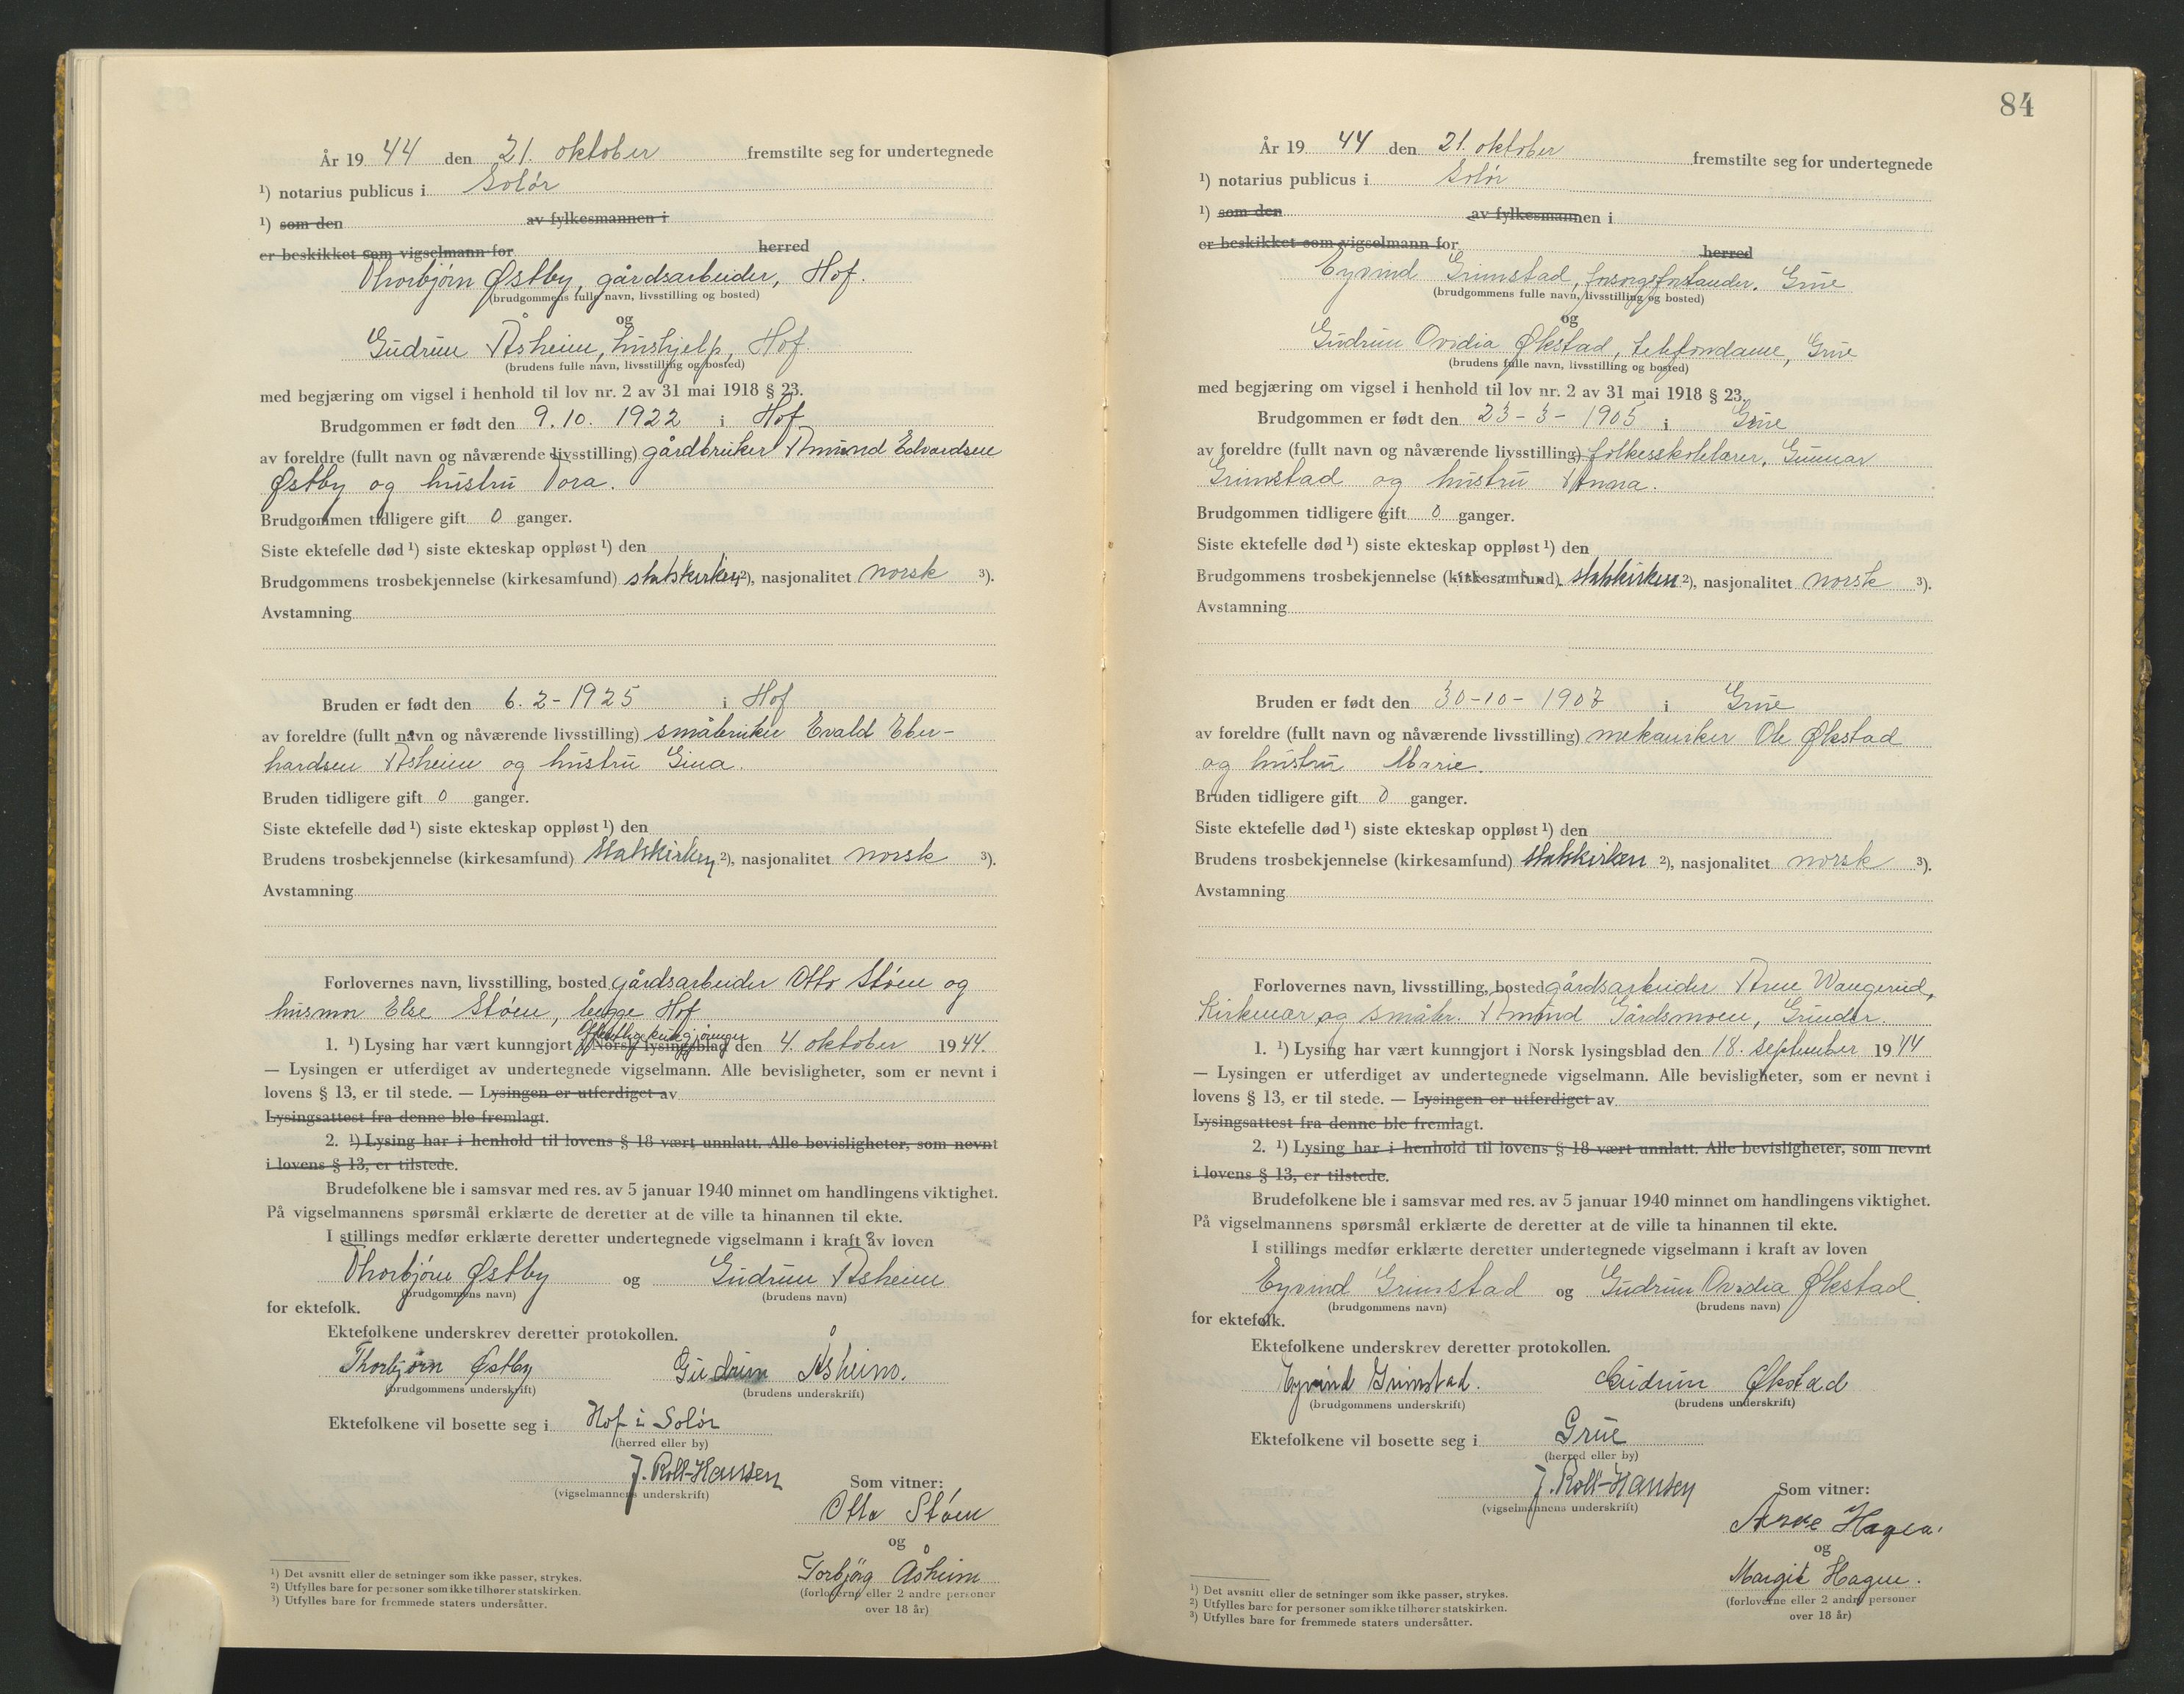 År 19 44 den 21. oktober fremstilte seg for undertegnede
¹) notarius publicus i Solør
¹) som den av fylkesmannen i
er beskikket som vigselmann for herred
Thorbjørn Østby, gårdsarbeider, Hof.
(brudgommens fulle navn, livsstilling og bosted)
og
Gudrun Åsheim, hushjelp, Hof.
(brudens fulle navn, livsstilling og bosted)
med begjæring om vigsel i henhold til lov nr. 2 av 31 mai 1918 § 23.
Brudgommen er født den 9. 10. 1922 i Hof
av foreldre (fullt navn og nåværende livsstilling) gårdbruker Amund Edvardsen
Østby og hustru Tora.
Brudgommen tidligere gift 0 ganger.
Siste ektefelle død ¹) siste ekteskap oppløst ¹) den
Brudgommens trosbekjennelse (kirkesamfund) statskirken ²), nasjonalitet norsk ³).
Avstamning
Bruden er født den 6. 2 - 1925 i Hof
av foreldre (fullt navn og nåværende livsstilling) småbruker Evald Eber-
hardsen Åsheim og hustru Gina.
Bruden tidligere gift 0 ganger.
Siste ektefelle død ¹) siste ekteskap oppløst ¹) den
Brudens trosbekjennelse (kirkesamfund) Statskirken ²), nasjonalitet norsk ³).
Avstamning
Forlovernes navn, livsstilling, bosted gårdsarbeider Otto Støen og
husmor Else Støen, begge Hof
offentlig kunngjøringer
1. ¹) Lysing har vært kunngjort i Norsk lysingsblad den 4. oktober 19 44.
— Lysingen er utferdiget av undertegnede vigselmann. Alle bevisligheter, som er nevnt i
lovens § 13, er til stede. — Lysingen er utferdiget av
Lysingsattest fra denne ble fremlagt.
2. ¹) Lysing har i henhold til lovens § 18 vært unnlatt. Alle bevisligheter, som nevnt
i lovens § 13, er tilstede.
Brudefolkene ble i samsvar med res. av 5 januar 1940 minnet om handlingens viktighet.
På vigselmannens spørsmål erklærte de deretter at de ville ta hinannen til ekte.
I stillings medfør erklærte deretter undertegnede vigselmann i kraft av loven
Thorbjørn Østby og Gudrun Åsheim
(brudgommens navn) (brudens navn)
for ektefolk.
Ektefolkene underskrev deretter protokollen.
Thorbjørn Østby Gudrun Åsheim.
(brudgommens underskrift) (brudens underskrift)
Ektefolkene vil bosette seg i Hof i Solør
(herred eller by)
J. Roll-Hansen
(vigselmannens underskrift)
Som vitner:
Otto Støen
og
Torbjørg Åsheim
(forloverne eller 2 andre personer
over 18 år)
¹) Det avsnitt eller de setninger som ikke passer, strykes.
²) Utfylles bare for personer som ikke tilhører statskirken.
³) Utfylles bare for fremmede staters undersåtter.
84
År 19 44 den 21. oktober fremstilte seg for undertegnede
¹) notarius publicus i Solør
¹) som den av fylkesmannen i
er beskikket som vigselmann for herred
Eyvind Grimstad, forsorgsforstander, Grue
(brudgommens fulle navn, livsstilling og bosted)
og
Gudrun Ovidia Økstad, telefondame, Grue
(brudens fulle navn, livsstilling og bosted)
med begjæring om vigsel i henhold til lov nr. 2 av 31 mai 1918 § 23.
Brudgommen er født den 23 - 3 - 1905 i Grue
av foreldre (fullt navn og nåværende livsstilling) folkeskolelærer, Gunnar
Grimstad og hustru Anna.
Brudgommen tidligere gift 0 ganger.
Siste ektefelle død ¹) siste ekteskap oppløst ¹) den
Brudgommens trosbekjennelse (kirkesamfund) statskirken ²), nasjonalitet norsk ³).
Avstamning
Bruden er født den 30 - 10 - 1907 i Grue
av foreldre (fullt navn og nåværende livsstilling) mekaniker Ole Økstad
og hustru Marie.
Bruden tidligere gift 0 ganger.
Siste ektefelle død ¹) siste ekteskap oppløst ¹) den
Brudens trosbekjennelse (kirkesamfund) statskirken ²), nasjonalitet norsk ³).
Avstamning
Forlovernes navn, livsstilling, bosted gårdsarbeider Arne Wangerud,
Kirkenær og småbr. Amund Gårdsmoen, Grinder.
1. ¹) Lysing har vært kunngjort i Norsk lysingsblad den 18. september 19 44
— Lysingen er utferdiget av undertegnede vigselmann. Alle bevisligheter, som er nevnt i
lovens § 13, er til stede. — Lysingen er utferdiget av
Lysingsattest fra denne ble fremlagt.
2. ¹) Lysing har i henhold til lovens § 18 vært unnlatt. Alle bevisligheter, som nevnt
i lovens § 13, er tilstede.
Brudefolkene ble i samsvar med res. av 5 januar 1940 minnet om handlingens viktighet.
På vigselmannens spørsmål erklærte de deretter at de ville ta hinannen til ekte.
I stillings medfør erklærte deretter undertegnede vigselmann i kraft av loven
Eyvind Grimstad og Gudrun Ovidia Økstad
(brudgommens navn) (brudens navn)
for ektefolk.
Ektefolkene underskrev deretter protokollen.
Eyvind Grimstad. Gudrun Økstad
(brudgommens underskrift) (brudens underskrift)
Ektefolkene vil bosette seg i Grue
(herred eller by)
J. Roll-Hansen
(vigselmannens underskrift)
Som vitner:
Arne Hagen.
og
Margit Hagen.
(forloverne eller 2 andre personer
over 18 år)
¹) Det avsnitt eller de setninger som ikke passer, strykes.
²) Utfylles bare for personer som ikke tilhører statskirken.
³) Utfylles bare for fremmede staters undersåtter.